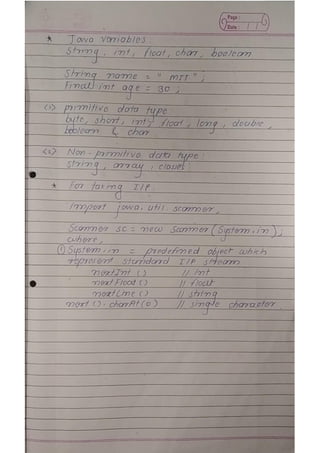 Page:
Date: 11
* Java variables
String, int, float, char, boolean
String name = "MIT";
Final int age = 30;
(1) primitive data type
byte, short, int, float, long, double,
boolean & char
(2) Non-primitive data type:
string, array, classes
* For taking I/P:
import java.util scanner,
Scanner sc = new Scanner (System.in);
where,
① System.in = predefined object which
represent standard I/P stream
nextInt () // Int
nextFloat () // float
nextLine () // string
next (). charAt (0) // single character